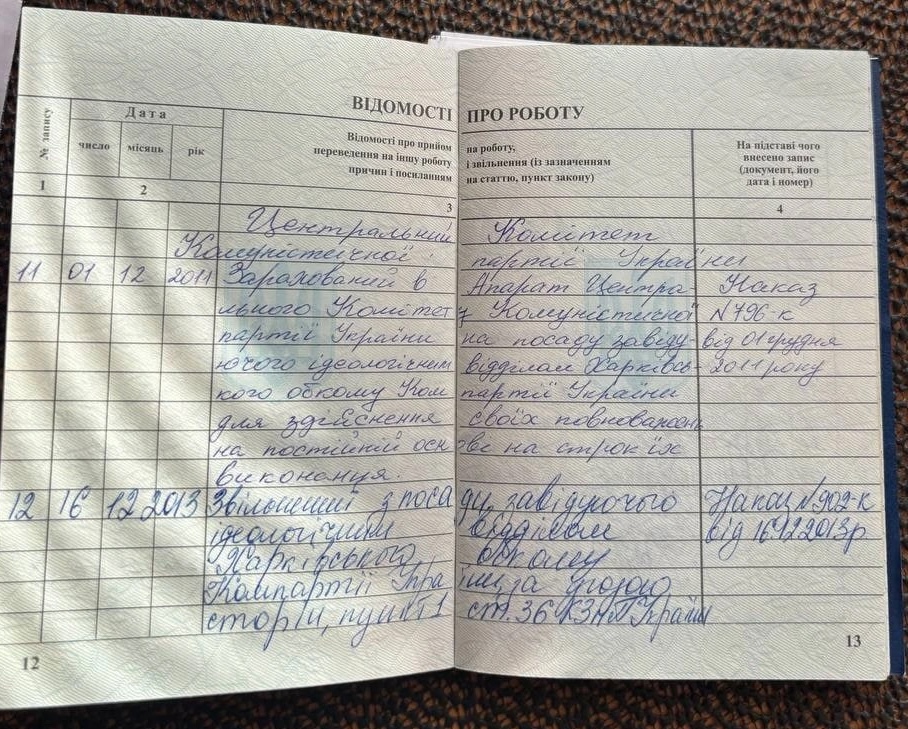 ВІДОМОСТІ ПРО РОБОТУ
№ запису
Дата
число місяць рік
Відомості про прийом на роботу,
переведення на іншу роботу і звільнення (із зазначенням
причин і посиланням на статтю, пункт закону)
На підставі чого
внесено запис
(документ, його
дата і номер)
1 2 3 4
Центральний Комітет
Комуністичної партії України
11 01 12 2011 Зарахований в Апарат Центра- Наказ
льного Комітету Комуністичної №796-к
партії України на посаду завіду- від 01 грудня
ючого ідеологічним відділом Харківсь- 2011 року
кого обкому Ком партії України
для здійснення своїх повноважень
на постійній основі на строк їх
виконання.
12 16 12 2013 Звільнений з посади завідуючого Наказ №902-к
ідеологічним відділом від 16.12.2013р
Харківського обкому
Компартії України за угодою
сторін, пункт 1 ст. 36 КЗпП України
12
13